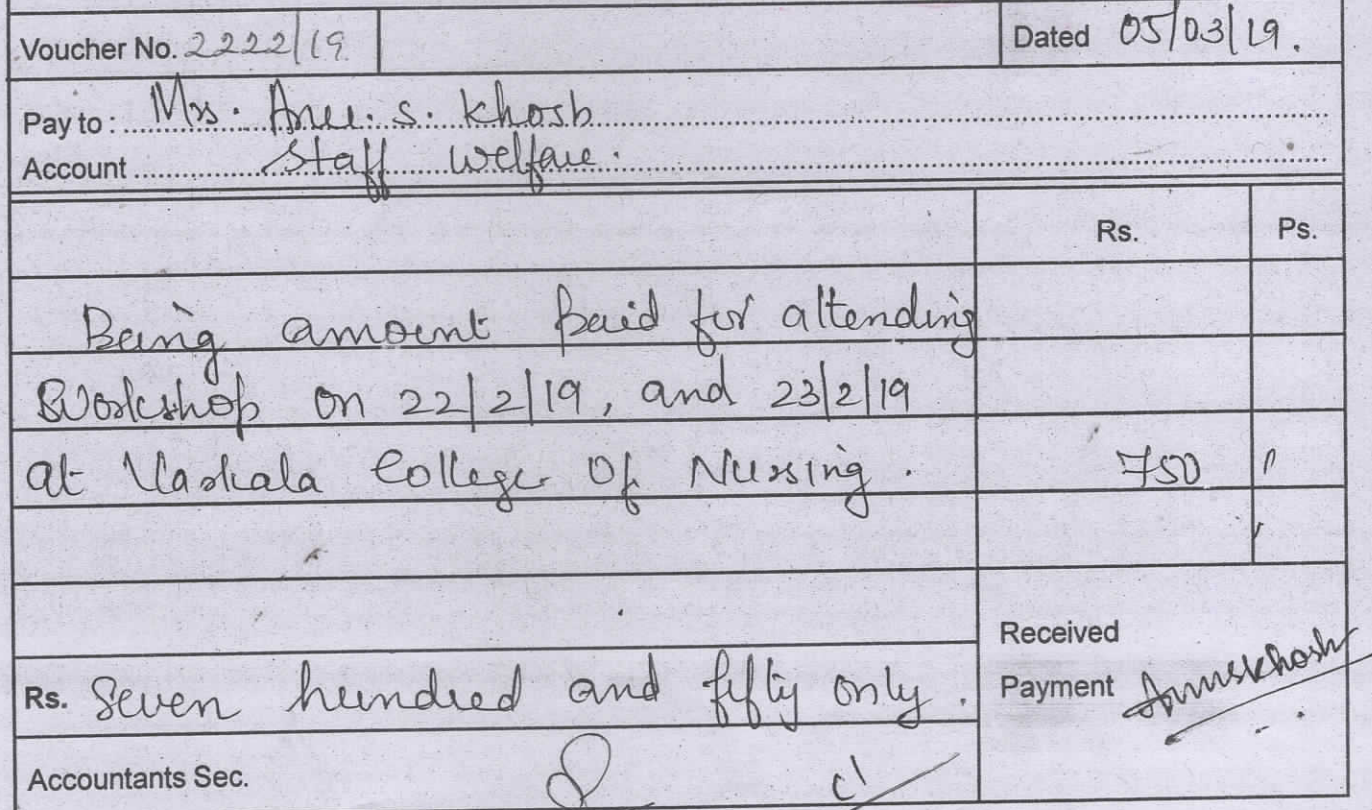 Voucher No. 2222/19
Dated 05/03/19.
Pay to : Mrs. Anu. S. Khosh
Account Staff welfare.
Rs. Ps.
Being amount paid for attending
Workshop on 22/2/19, and 23/2/19
at Varkala College Of Nursing. 750
Received
Rs. Seven hundred and fifty only. Payment
Accountants Sec.